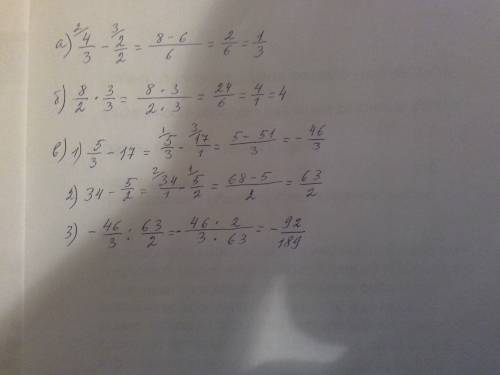 а) ²/4/3 - ³/2/2 = (8-6)/6 = 2/6 = 1/3
б) 8/2 · 3/3 = (8·3)/(2·3) = 24/6 = 4/1 = 4
в) 1) 5/3 - 17 = ¹/5/3 - ³/17/1 = (5-51)/3 = -46/3
2) 34 - 5/2 = ²/34/1 - ¹/5/2 = (68-5)/2 = 63/2
3) -46/3 : 63/2 = -(46·2)/(3·63) = -92/189